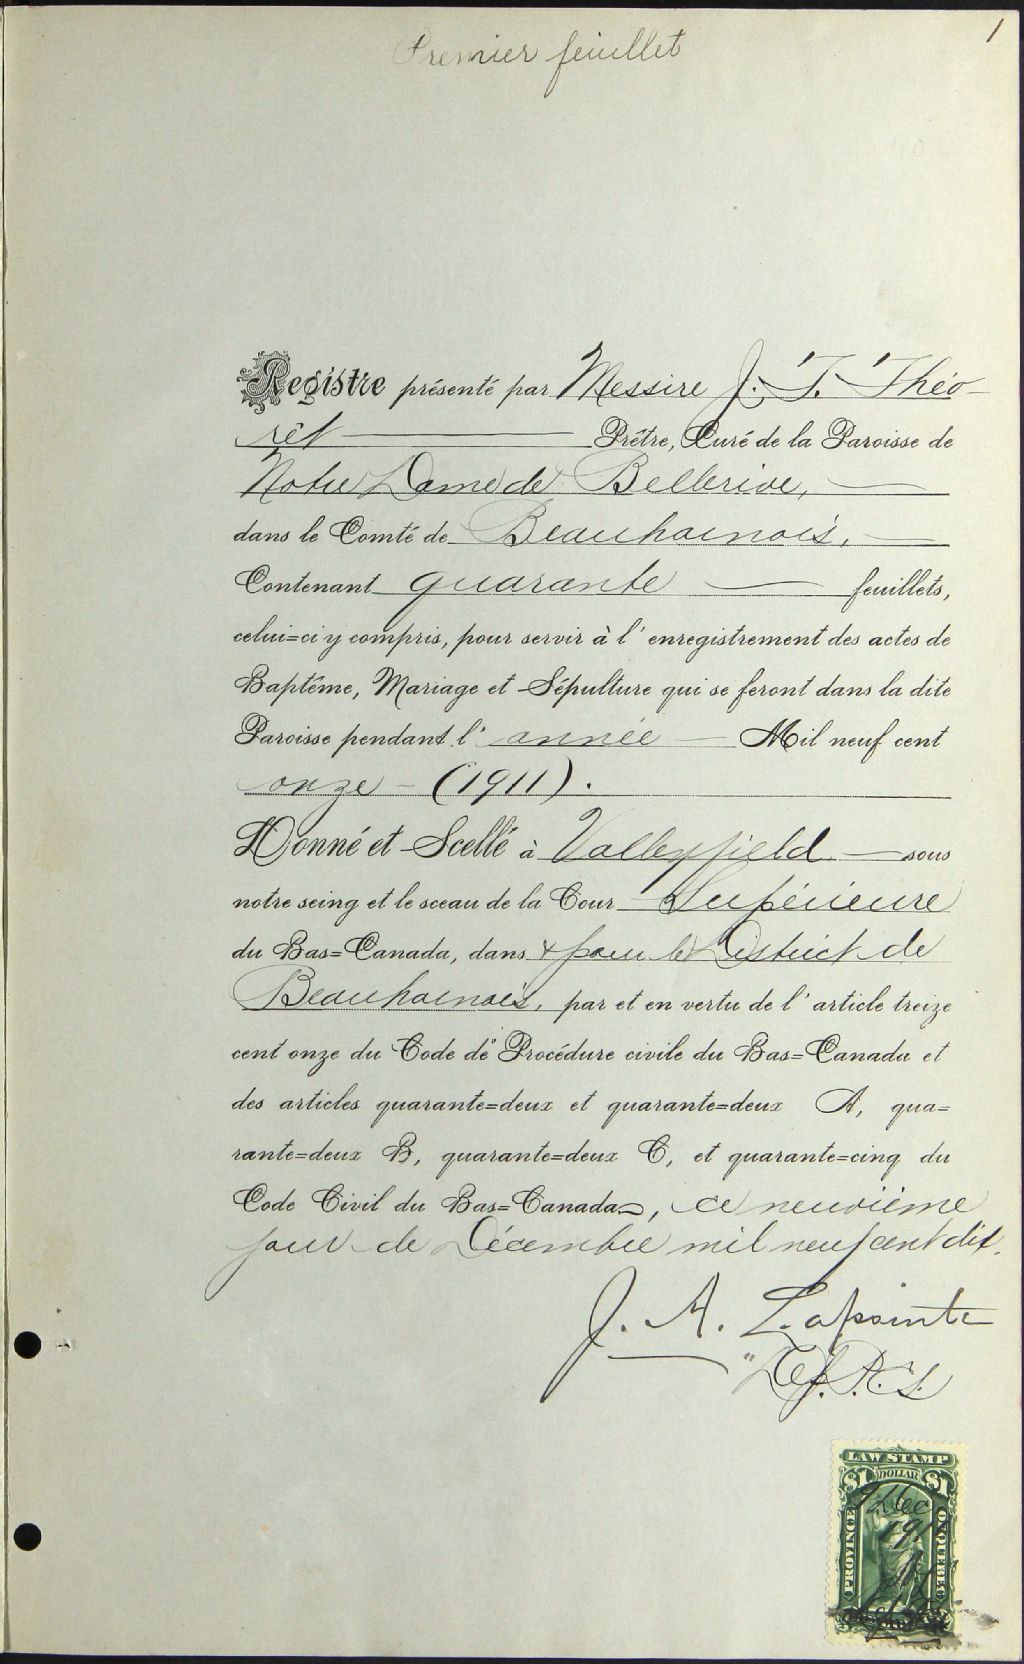 1
Premier feuillet
Registre présenté par Messire J. T. Théo-
rêt Prêtre, Curé de la Paroisse de
Notre Dame de Bellerive,
dans le Comté de Beauharnois,
Contenant quarante feuillets,
celui=ci y compris, pour servir à l'enregistrement des actes de
Baptême, Mariage et Sépulture qui se feront dans la dite
Paroisse pendant l'année Mil neuf cent
onze - (1911).
Donné et Scellé à Valleyfield sous
notre seing et le sceau de la Cour Supérieure
du Bas=Canada, dans & pour le District de
Beauharnois, par et en vertu de l'article treize
cent onze du Code de Procédure civile du Bas=Canada et
des articles quarante=deux et quarante=deux A, qua=
rante=deux B, quarante=deux C, et quarante=cinq du
Code Civil du Bas=Canada, ce neuvième
jour de Décembre mil neuf cent dix.
J. A. Lapointe
Dép. P.C.S.
LAW STAMP
$1 DOLLAR $1
PROVINCE OF QUEBEC
9 Dec